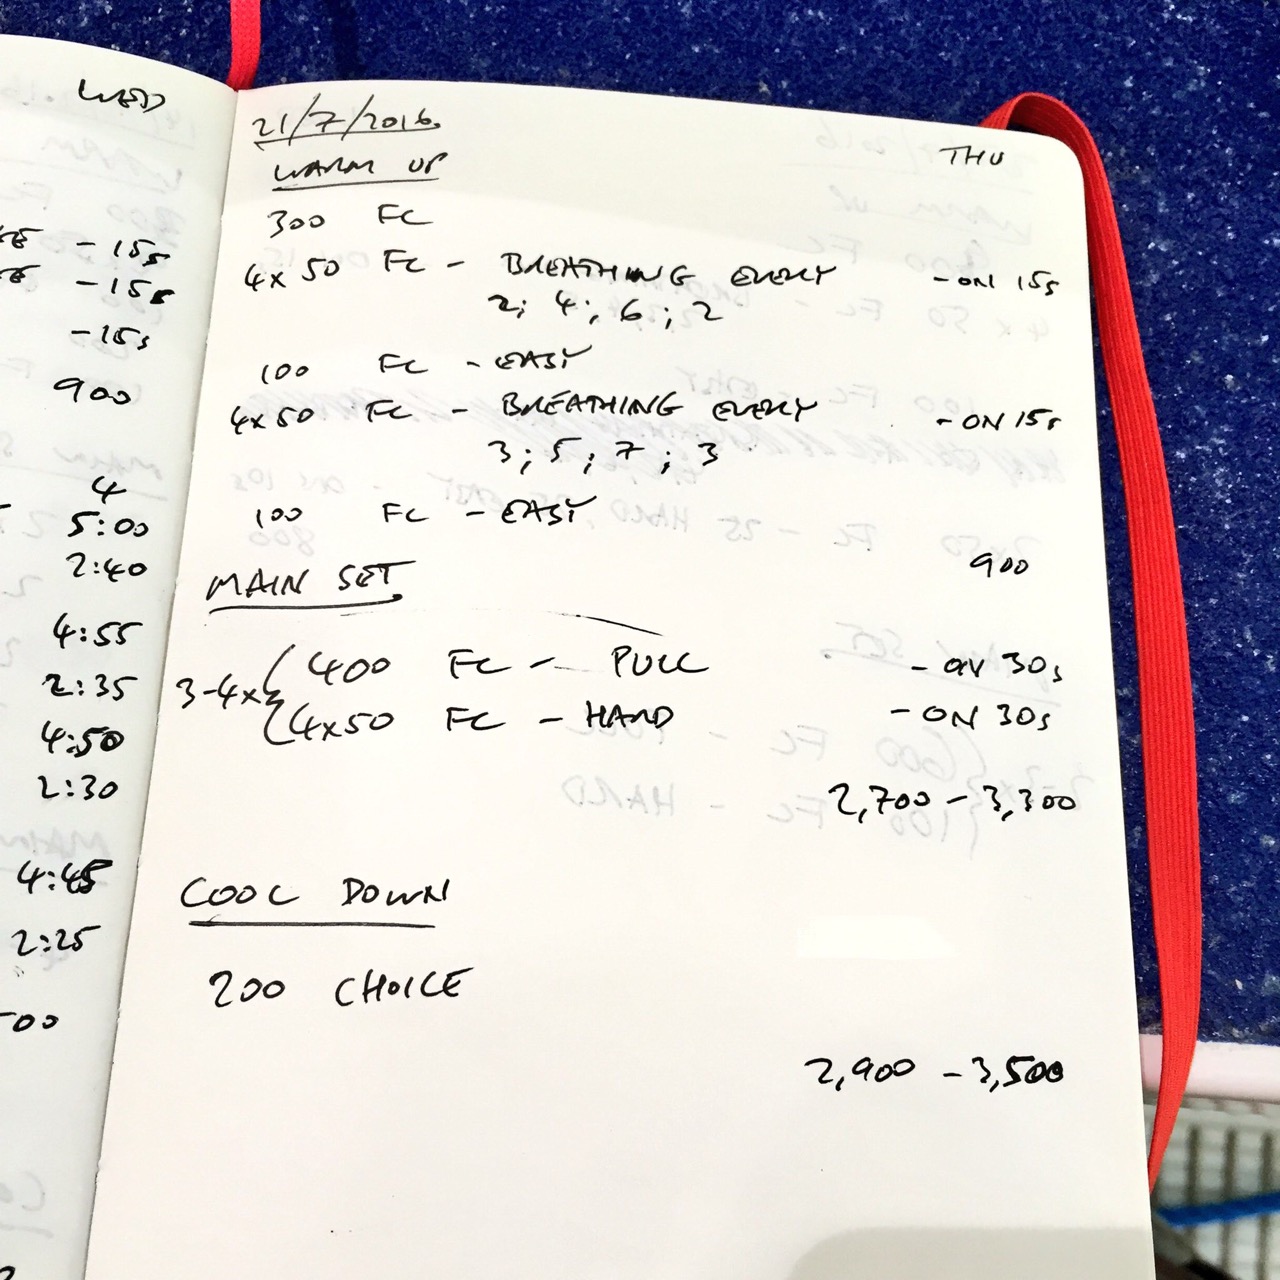 WED
- 15s
- 15s
- 15s
900
4
5:00
2:40
4:55
2:35
4:50
2:30
4:45
2:25
21/7/2016
THU
WARM UP
300 FC
4x50 FC - BREATHING EVERY - ON 15s
2; 4; 6; 2
100 FC - EASY
4x50 FC - BREATHING EVERY - ON 15s
3; 5; 7; 3
100 FC - EASY
900
MAIN SET
3-4x { 400 FC - PULL - ON 30s
4x50 FC - HARD - ON 30s
2,700 - 3,300
COOL DOWN
200 CHOICE
2,900 - 3,500